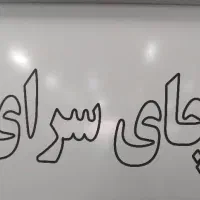 چای سرای